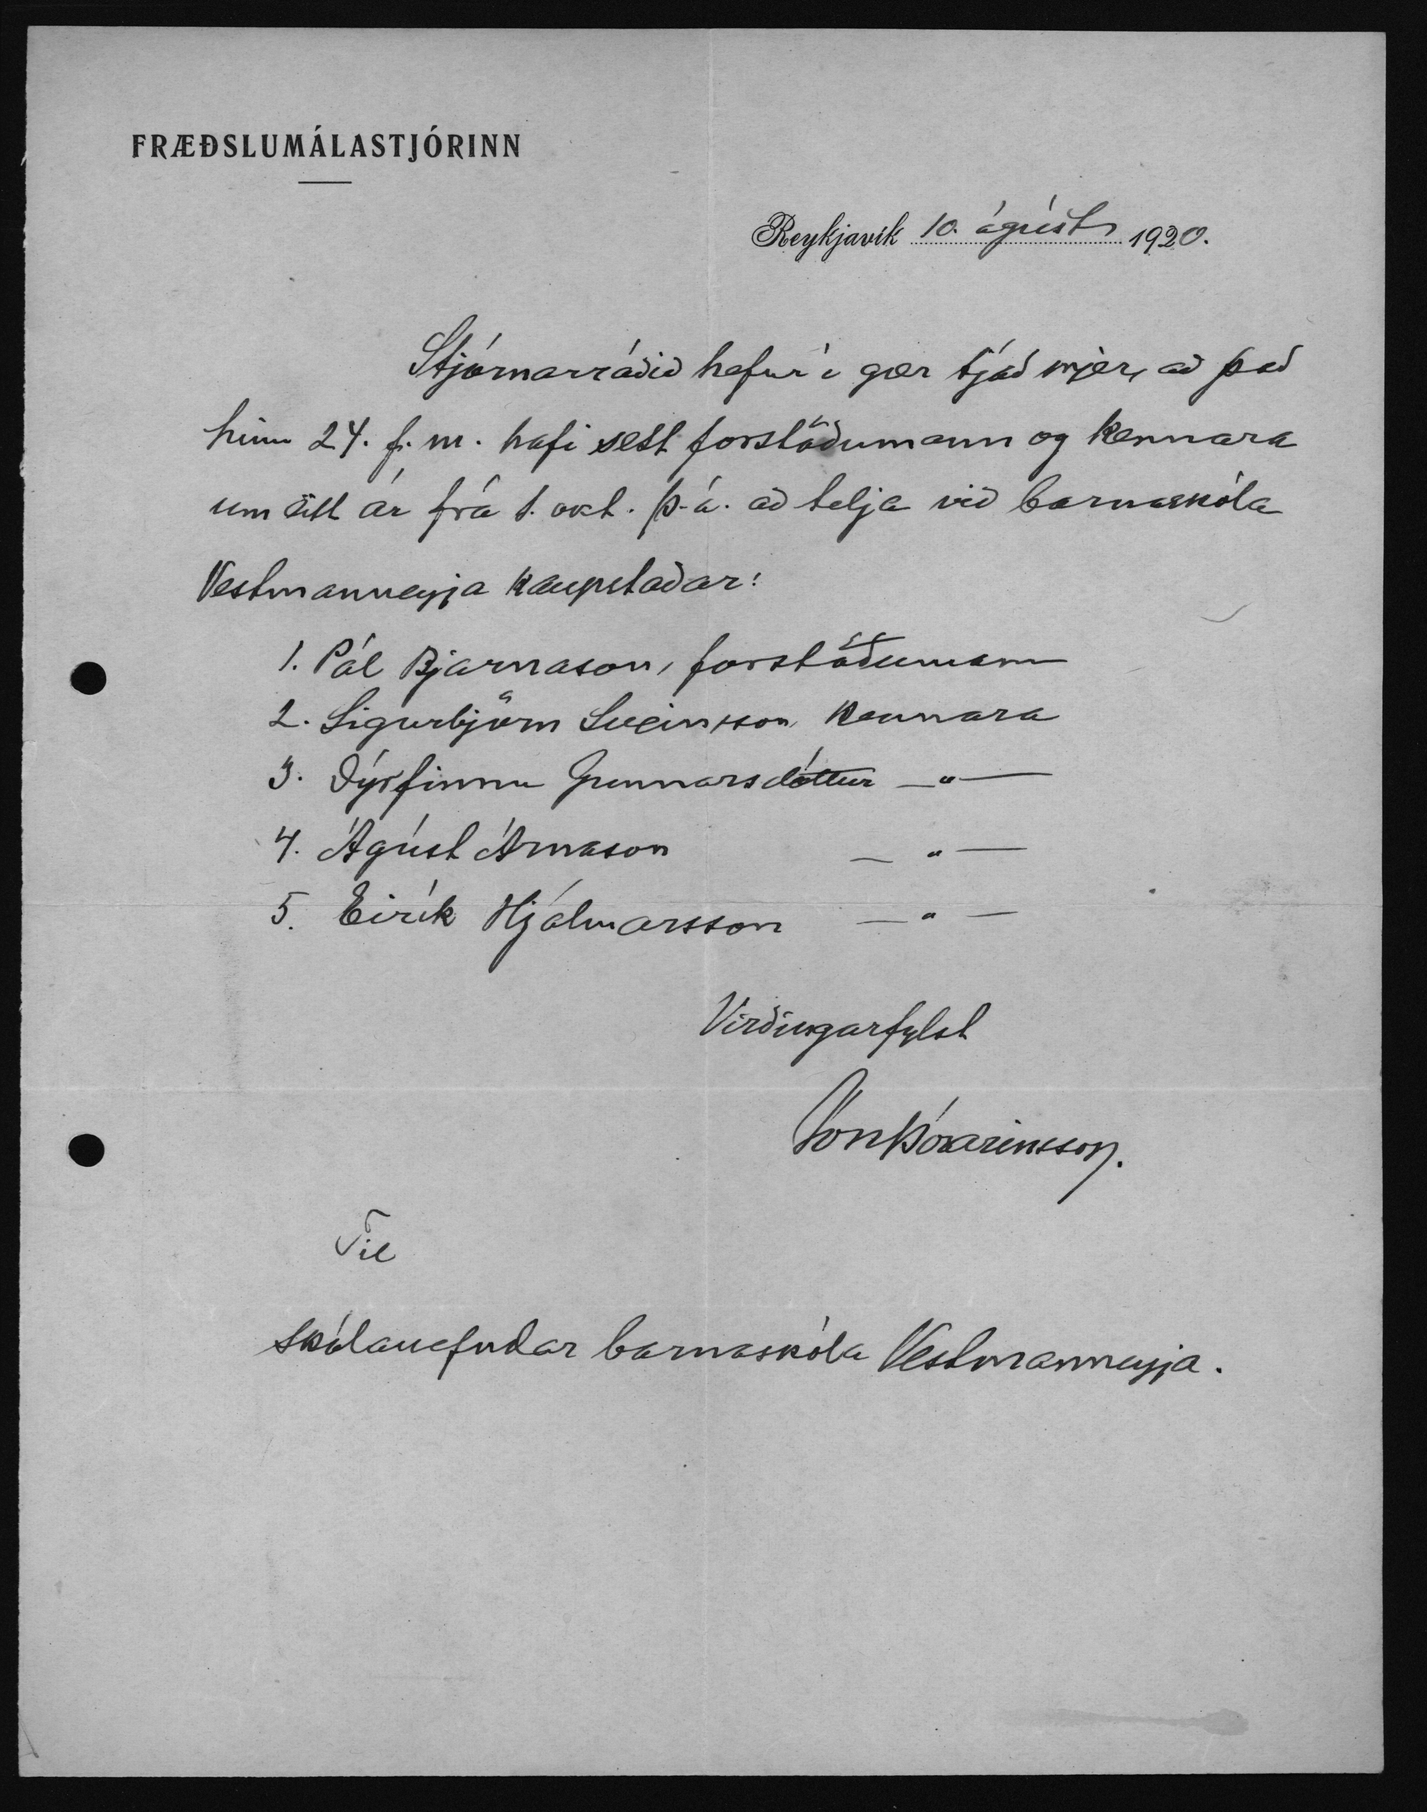 FRÆÐSLUMÁLASTJÓRINN
Reykjavík 10. ágúst 1920.
Stjórnarráðið hefur í gær tjáð mjer, að það
hinn 24. f. m. hafi sett forstöðumann og kennara
um eitt ár frá 1. okt. þ. á. að telja við barnaskóla
Vestmanneyja kaupstaðar:
1. Pál Bjarnason, forstöðumann
2. Sigurbjörn Sveinsson, kennara
3. Dýrfinnu Gunnarsdóttur —〃—
4. Ágúst Árnason —〃—
5. Eirík Hjálmarsson —〃—
Virðingarfylst
Jón Þórarinsson.
Til
skólanefndar barnaskóla Vestmanneyja.